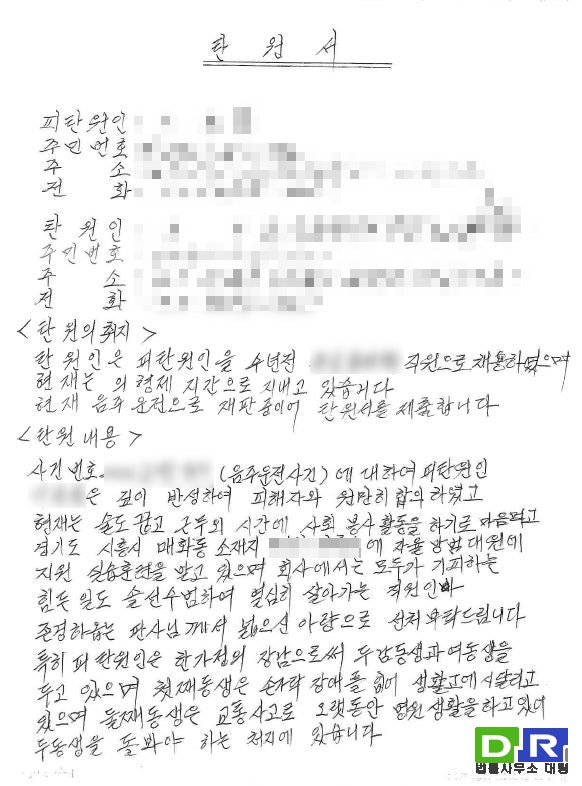 탄 원 서
피탄원인
주민번호
주 소
전 화
탄 원 인
주민번호
주 소
전 화
<탄원의취지>
탄원인은 피탄원인을 수년전 직원으로 채용하였으며
현재는 의형제 지간으로 지내고 있습니다
현재 음주운전으로 재판중이어 탄원서를 제출합니다
<탄원내용>
사건번호 (음주운전사건)에 대하여 피탄원인
은 깊이 반성하여 피해자와 원만히합의 하였고
현재는 술도 끊고 근무외 시간에 사회 봉사활동을 하기로 마음먹고
경기도 시흥시 매화동 소재지 에 자율방범대원에
지원 실습훈련을 받고 있으며 회사에서는 모두가 기피하는
힘든 일도 솔선수범하여 열심히 살아가는 직원인바
존경하옵는 판사님께서 넓으신 아량으로 선처 부탁드립니다
특히 피탄원인은 한가정의 장남으로써 두남동생과 여동생을
두고 있으며 첫째동생은 손가락 장애를 입어 생활고에 시달리고
있으며 둘째동생은 교통사고로 오랫동안 병원생활을하고있어
두동생을 돌봐야 하는 처지에 있습니다
DR
법률사무소 대륜